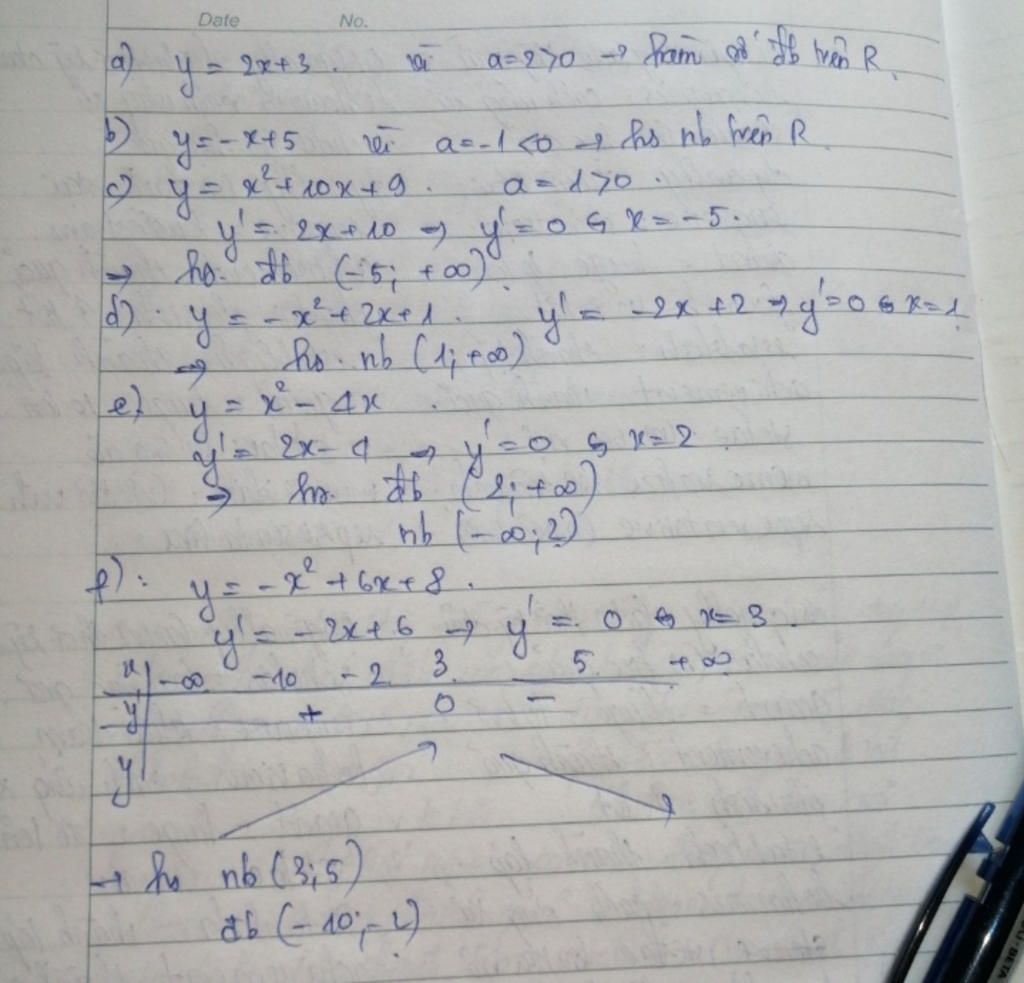 Date No.
a) y = 2x+3. vì a=2>0 → hàm số đb trên R.
b) y=-x+5 vì a=-1<0 → hs nb trên R.
c) y = x²+10x+9. a=1>0.
y' = 2x+10 → y'=0 ⇔ x=-5.
→ hs. đb (-5; +∞).
d). y = -x²+2x+1. y' = -2x+2 → y'=0 ⇔ x=1
→ hs. nb (1; +∞)
e) y = x² - 4x.
y' = 2x-4 → y'=0 ⇔ x=2
→ hs. đb (2; +∞)
nb (-∞; 2)
f): y = -x²+6x+8.
y' = -2x+6 → y' = 0 ⇔ x=3.
x -∞ -10 -2 3 5 +∞
y' + 0 -
y
→ hs nb (3; 5)
đb (-10; -2)